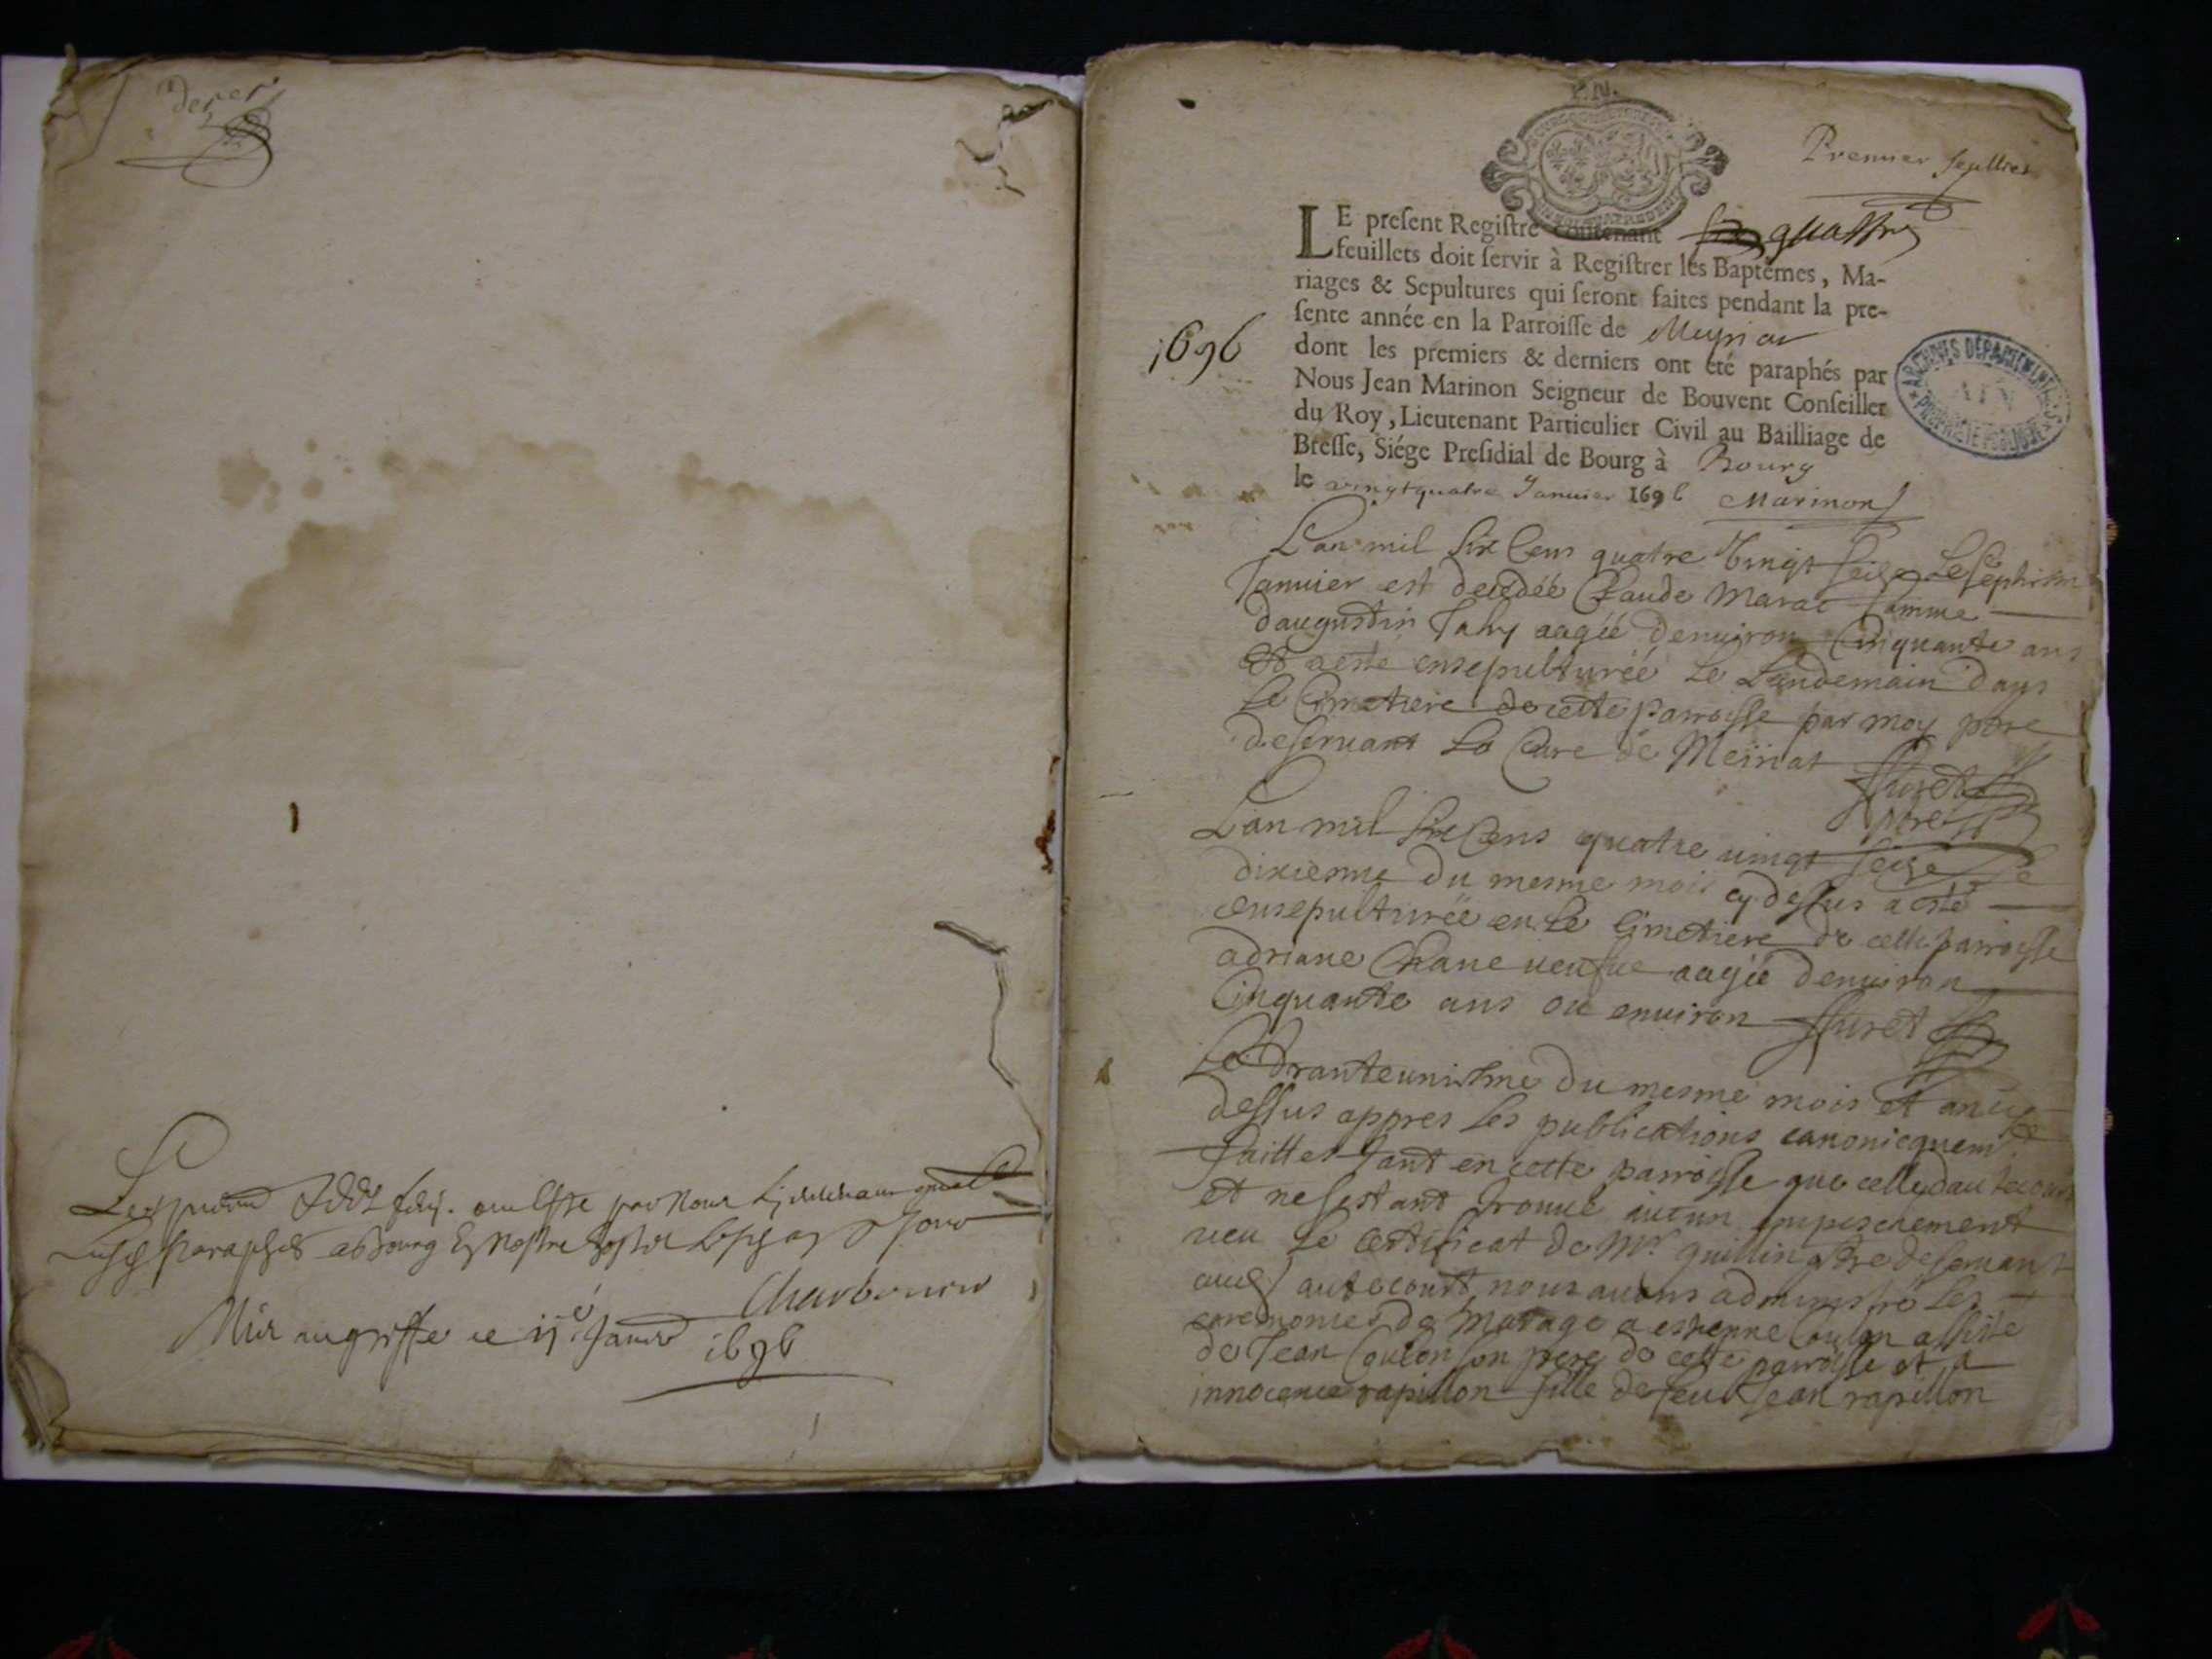 der er
Mis au greffe ce Janv 1696
Charbonier
Premier feuillet
LE preſent Regiſtre contenant six quattre
feuillets doit ſervir à Regiſtrer les Baptêmes, Ma-
riages & Sepultures qui ſeront faites pendant la pre-
ſente année en la Parroiſſe de Meyriat
1696
dont les premiers & derniers ont été paraphés par
Nous Jean Marinon Seigneur de Bouvent Conſeiller
du Roy, Lieutenant Particulier Civil au Bailliage de
Breſſe, Siége Preſidial de Bourg à Bourg
le vingtquatre Januier 1696 Marinon
ARCHIVES DÉPARTEMENTALES
AIN
PROPRIÉTÉ PUBLIQUE
Lan mil six Cens quatre Vingt seize Le septiesme
Januier est decedée Claude Marat famme
daugustin aagée denuiron Cinquante ans
Et a este ensepulturée Le Landemain dans
Le Cimetiere de cette parroisse par moy pbre
deseruant La Cure de Meiriat
Furet
pbre
Lan mil six Cens quatre uingt seize Le
dixiesme du mesme mois cy dessus a esté
ensepulturée en Le Cimetiere de cette parroisse
adriane Chane ueufue aagée denuiron
Cinquante ans ou enuiron Furet
Le tranteuniesme du mesme mois Et an cy
dessus appres Les publications canonicquem.t
faittes tant en cette parroisse que celle dautecourt
et ne sestant trouué aucun empeschement
ueu Le Certificat de M.r guillin pbre deseruant
audt autecourt nous auons administré Les
ceremonies de Mariage a estienne Coulon assisté
de Jean Coulon son frere de cette parroisse et a
innocence rapillon fille de feu Jean rapillon